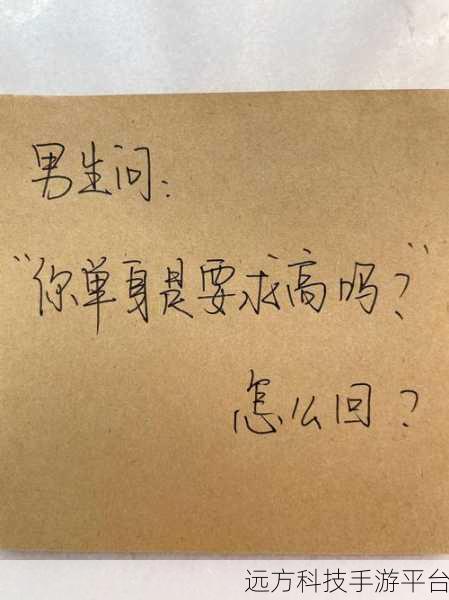 男生问：
"你单身是要求高吗？"
怎么回？
远方科技手游平台